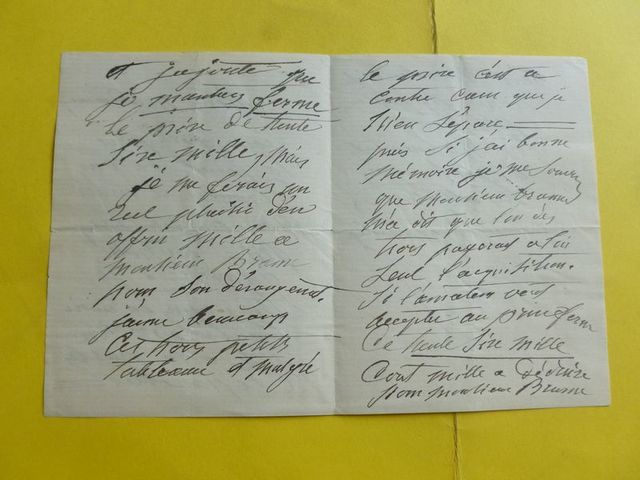 et j'ajoute que
je maintiens ferme
le prix de trente
six mille, mais
je me ferais un
réel plaisir d'en
offrir mille a
monsieur Brame
pour son dérangement.
j'aime beaucoup
ces trois petits
tableaux et malgré
le prix c'est a
contre cœur que je
m'en sépare
puis si j'ai bonne
mémoire je me souviens
que monsieur Brame
m'a dit que l'un des
trois payerait a lui
seul l'acquisition.
Si l'amateur veut
accepter au prix ferme
de trente six mille
c'est mille a déduire
pour monsieur Brame